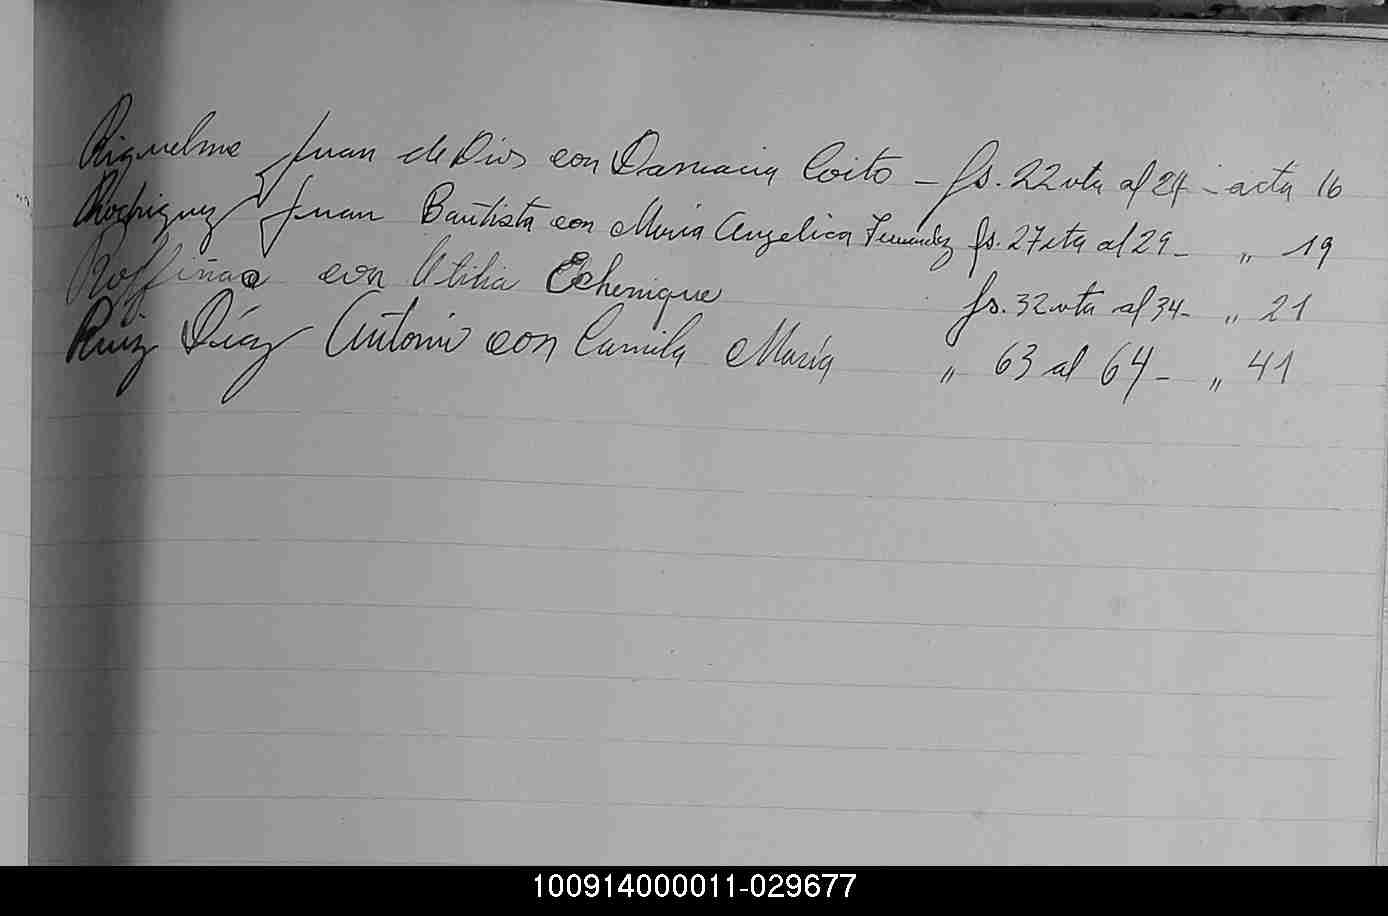 Riquelme Juan de Dios con Damacia Coito - fs. 22 vta al 24 - acta 16
Rodriguez Juan Bautista con Maria Angelica Fernandez fs. 27 vta al 29 - " 19
con Otilia Echenique fs. 32 vta al 34 - " 21
Ruiz Díaz Antonio con Camila María " 63 al 64 - " 41
100914000011-029677